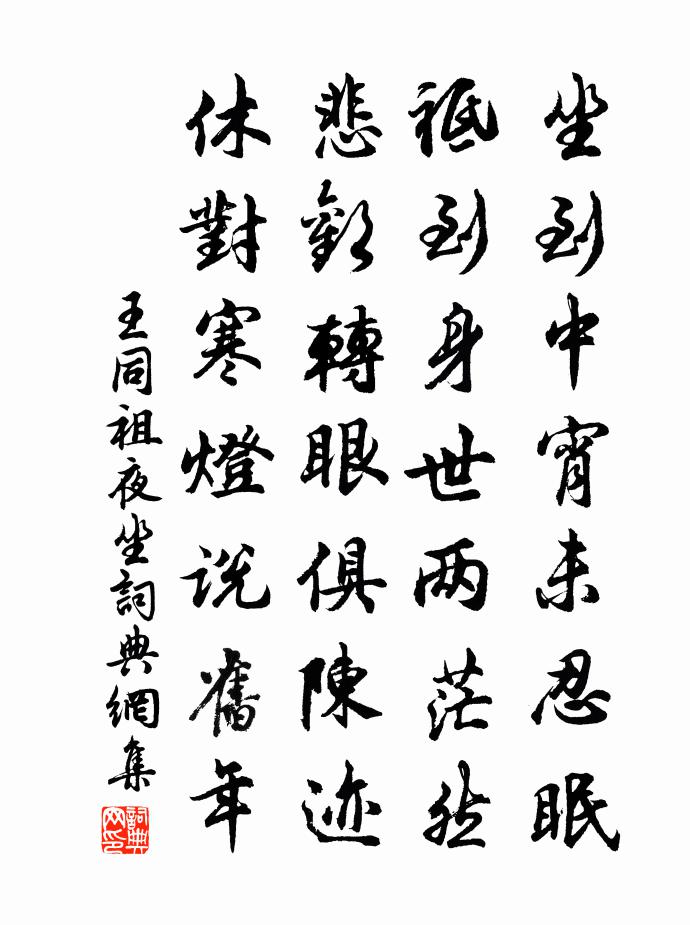 坐到中宵未忍眠
祗到身世两茫然
悲歡轉眼俱陳迹
休對寒燈説舊年
王同祖夜坐詞典網集
詞典网印